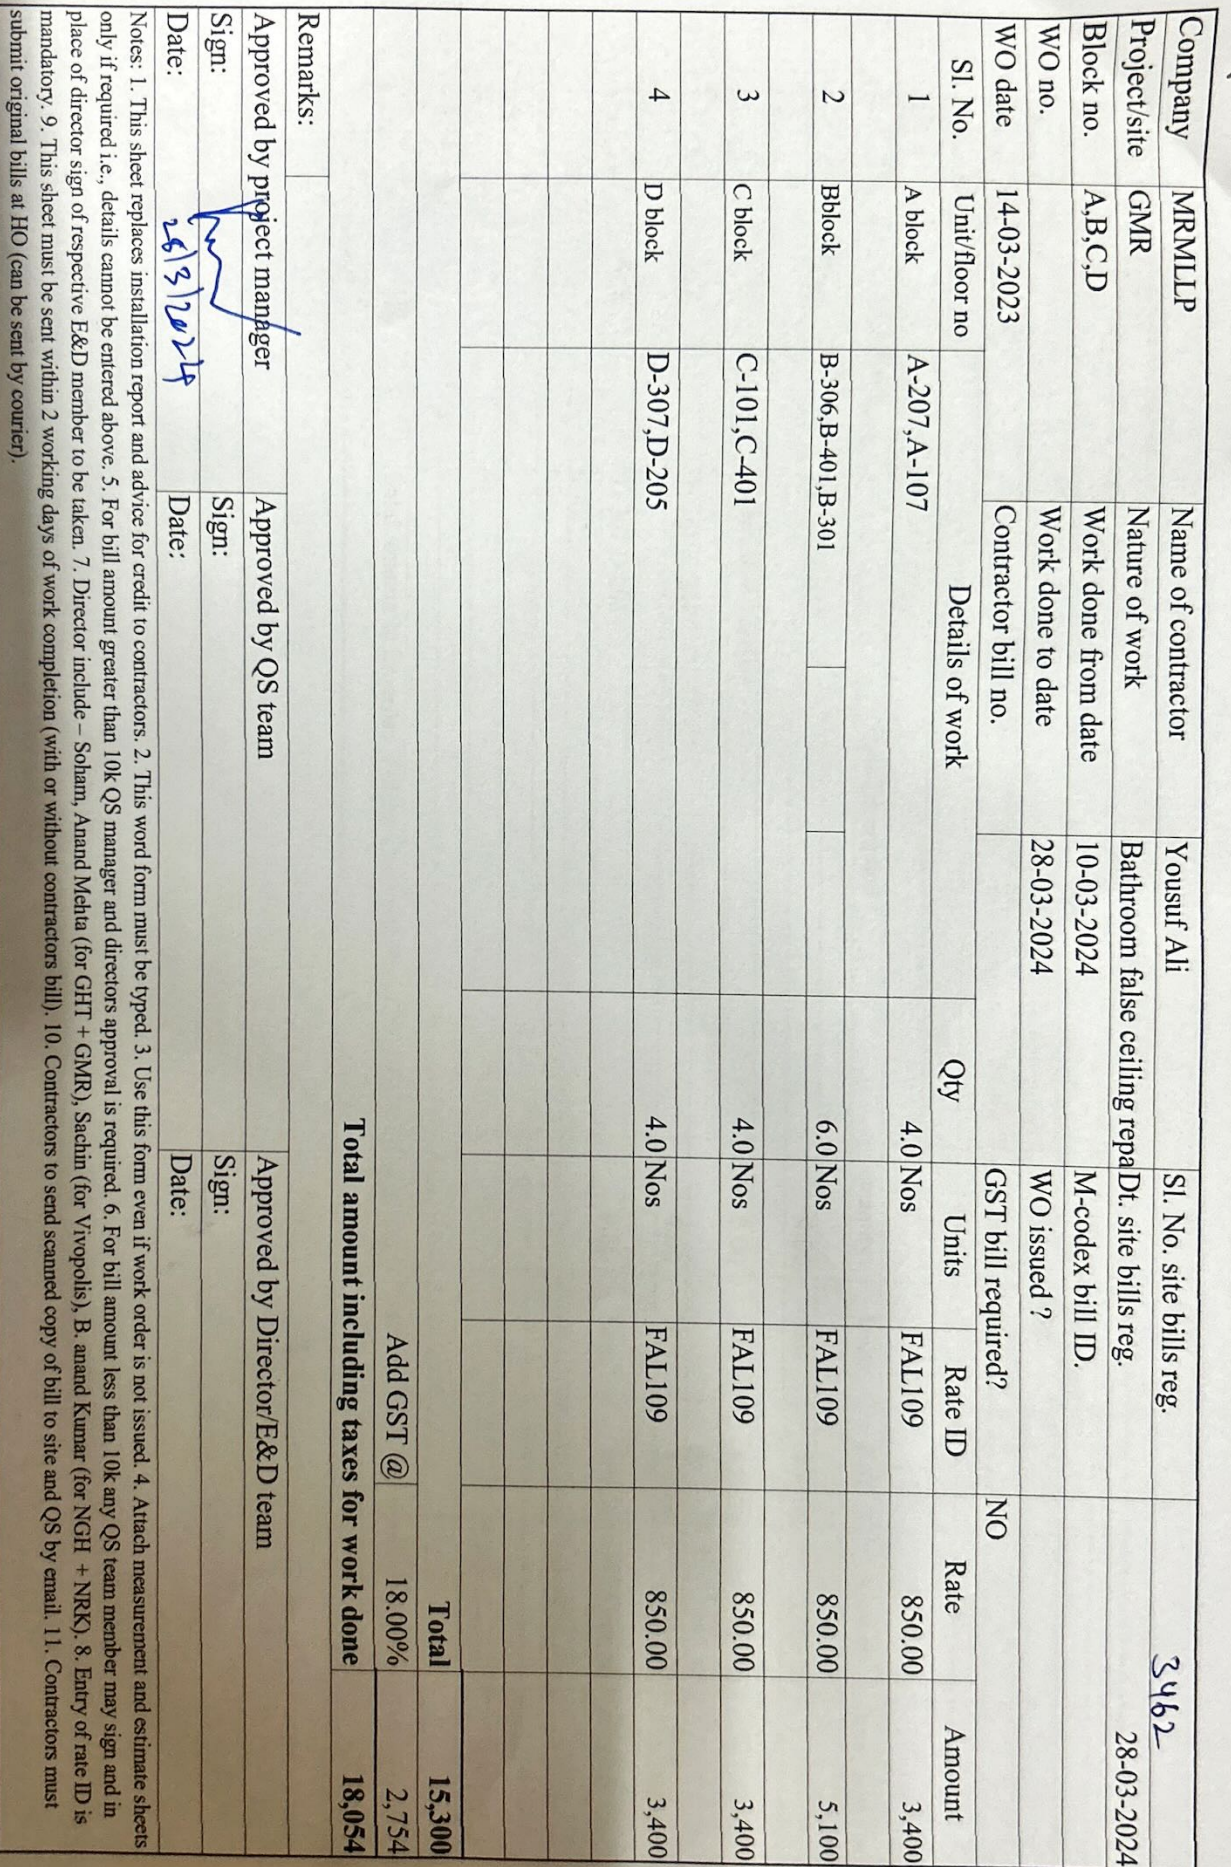 Company MRMLLP Name of contractor Yousuf Ali Sl. No. site bills reg. 3462
Project/site GMR Nature of work Bathroom false ceiling repa Dt. site bills reg. 28-03-2024
Block no. A,B,C,D Work done from date 10-03-2024 M-codex bill ID.
WO no. Work done to date 28-03-2024 WO issued ?
WO date 14-03-2023 Contractor bill no. GST bill required? NO
Sl. No. Unit/floor no Details of work Qty Units Rate ID Rate Amount
1 A block A-207,A-107 4.0 Nos FAL109 850.00 3,400
2 Bblock B-306,B-401,B-301 6.0 Nos FAL109 850.00 5,100
3 C block C-101,C-401 4.0 Nos FAL109 850.00 3,400
4 D block D-307,D-205 4.0 Nos FAL109 850.00 3,400
Total 15,300
Add GST @ 18.00% 2,754
Total amount including taxes for work done 18,054
Remarks:
Approved by project manager Approved by QS team Approved by Director/E&D team
Sign: Sign: Sign:
Date: 28/3/2024 Date: Date:
Notes: 1. This sheet replaces installation report and advice for credit to contractors. 2. This word form must be typed. 3. Use this form even if work order is not issued. 4. Attach measurement and estimate sheets
only if required i.e., details cannot be entered above. 5. For bill amount greater than 10k QS manager and directors approval is required. 6. For bill amount less than 10k any QS team member may sign and in
place of director sign of respective E&D member to be taken. 7. Director include – Soham, Anand Mehta (for GHT + GMR), Sachin (for Vivopolis), B. anand Kumar (for NGH + NRK). 8. Entry of rate ID is
mandatory. 9. This sheet must be sent within 2 working days of work completion (with or without contractors bill). 10. Contractors to send scanned copy of bill to site and QS by email. 11. Contractors must
submit original bills at HO (can be sent by courier).